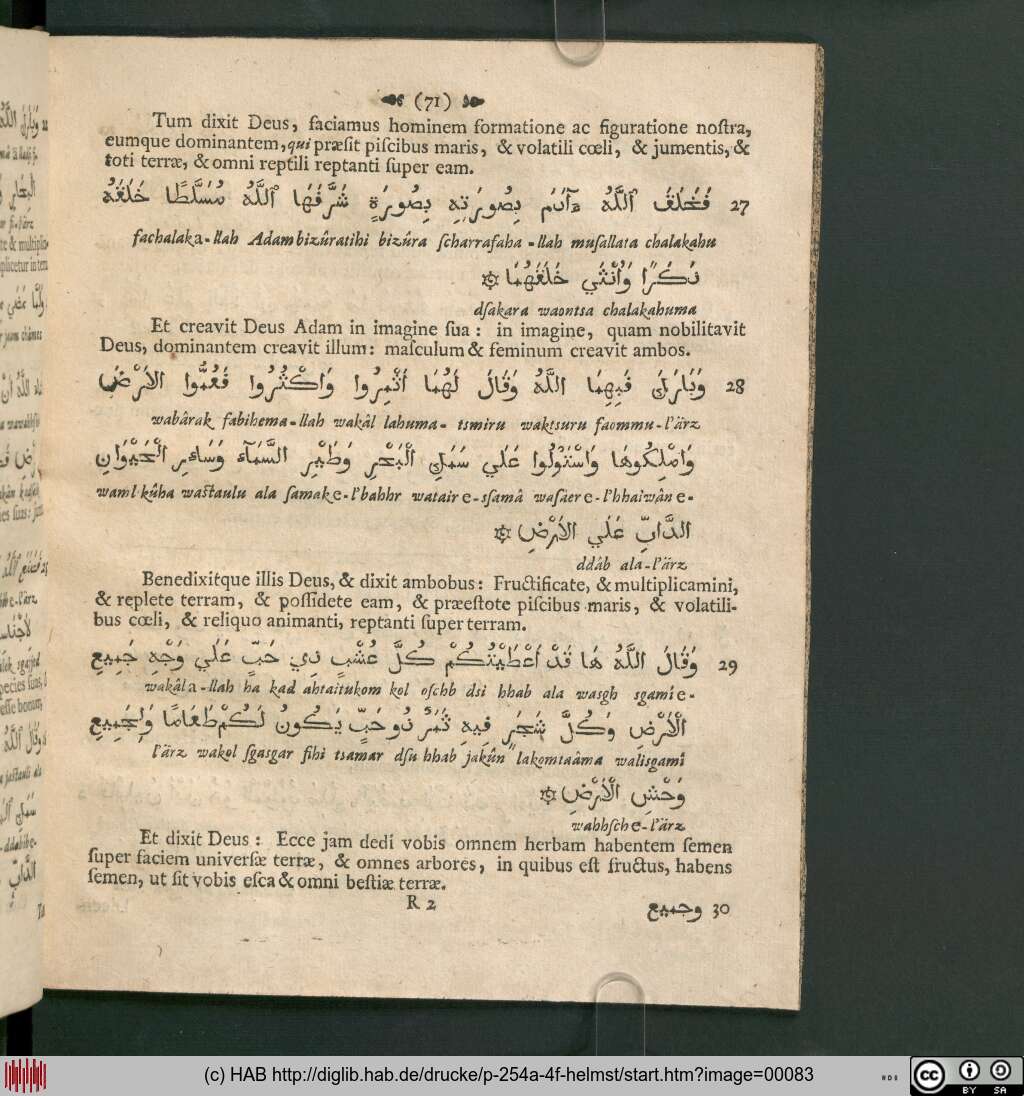 (71)
Tum dixit Deus, faciamus hominem formatione ac figuratione noſtra,
eumque dominantem, qui præſit piſcibus maris, & volatili cœli, & jumentis, &
toti terræ, & omni reptili reptanti ſuper eam.
27 فَخَلَقَ ٱللَّهُ ءآدَمَ بِصُورَتِهِ بِصُورَةٍ شَرَّفَهَا ٱللَّهُ مُسَلَّطًا خَلَقَهُ
fachalaka-llah Adambizûratihi bizûra ſcharrafaha-llah muſallata chalakahu
ذَكَرًا وَأُنْثَي خَلَقَهُمَا ۞
dſakara waontsa chalakahuma
Et creavit Deus Adam in imagine ſua: in imagine, quam nobilitavit
Deus, dominantem creavit illum: maſculum & feminum creavit ambos.
28 وَبَارَكَ فَيِهِمَا اللَّهُ وَقَالَ لَهُمَا أَثْمِرُوا وَاكْثُرُوا فَعُمُّوا الاَرْضَ
wabârak fabihema-llah wakâl lahuma- tsmiru waktsuru faommu-l'ärz
وَامْلِكُوهَا وَاسْتَوْلُوا عَلَي سَمَكِ الْبَحْرِ وَطَيْرِ السَّمَآء وَسَاءىرِ الْحَيْوَانِ
waml kûha waſtaulu ala ſamake-l'bahhr wataire-ſſamâ waſäere-l'hhaiwâne-
الدَّابِّ عَلَي الاَرْضِ ۞
ddâb ala-l'ärz
Benedixitque illis Deus, & dixit ambobus: Fructificate, & multiplicamini,
& replete terram, & poſſidete eam, & præeſtote piſcibus maris, & volatili-
bus cœli, & reliquo animanti, reptanti ſuper terram.
29 وَقَالَ اللَّهُ هَا قَدْ أَعْطَيْتُكُمْ كُلَّ عُشْبٍ ذِي حَبٍّ عَلَي وَجْهِ جَمِيعِ
wakâla-llah ha kad ahtaitukom kol oſchb dsi hhab ala wasgh sgamie-
الْاَرْضِ وَكُلَّ شَجَرِ فِيهِ ثَمَرٌ ذُو حَبٍّ يَكُونُ لَكُمْ طَعَامًا وَلِجَمِيعِ
l'ärz wakol ſgasgar fihi tsamar dſu hhab jakûn lakomtaâma walisgami
وَحْشِ الْاَرْضِ ۞
wahhſche-l'ärz
Et dixit Deus: Ecce jam dedi vobis omnem herbam habentem ſemen
ſuper faciem univerſæ terræ, & omnes arbores, in quibus eſt fructus, habens
ſemen, ut ſit vobis eſca & omni beſtiæ terræ.
R 2
30 وجميع
(c) HAB http://diglib.hab.de/drucke/p-254a-4f-helmst/start.htm?image=00083
cc BY SA